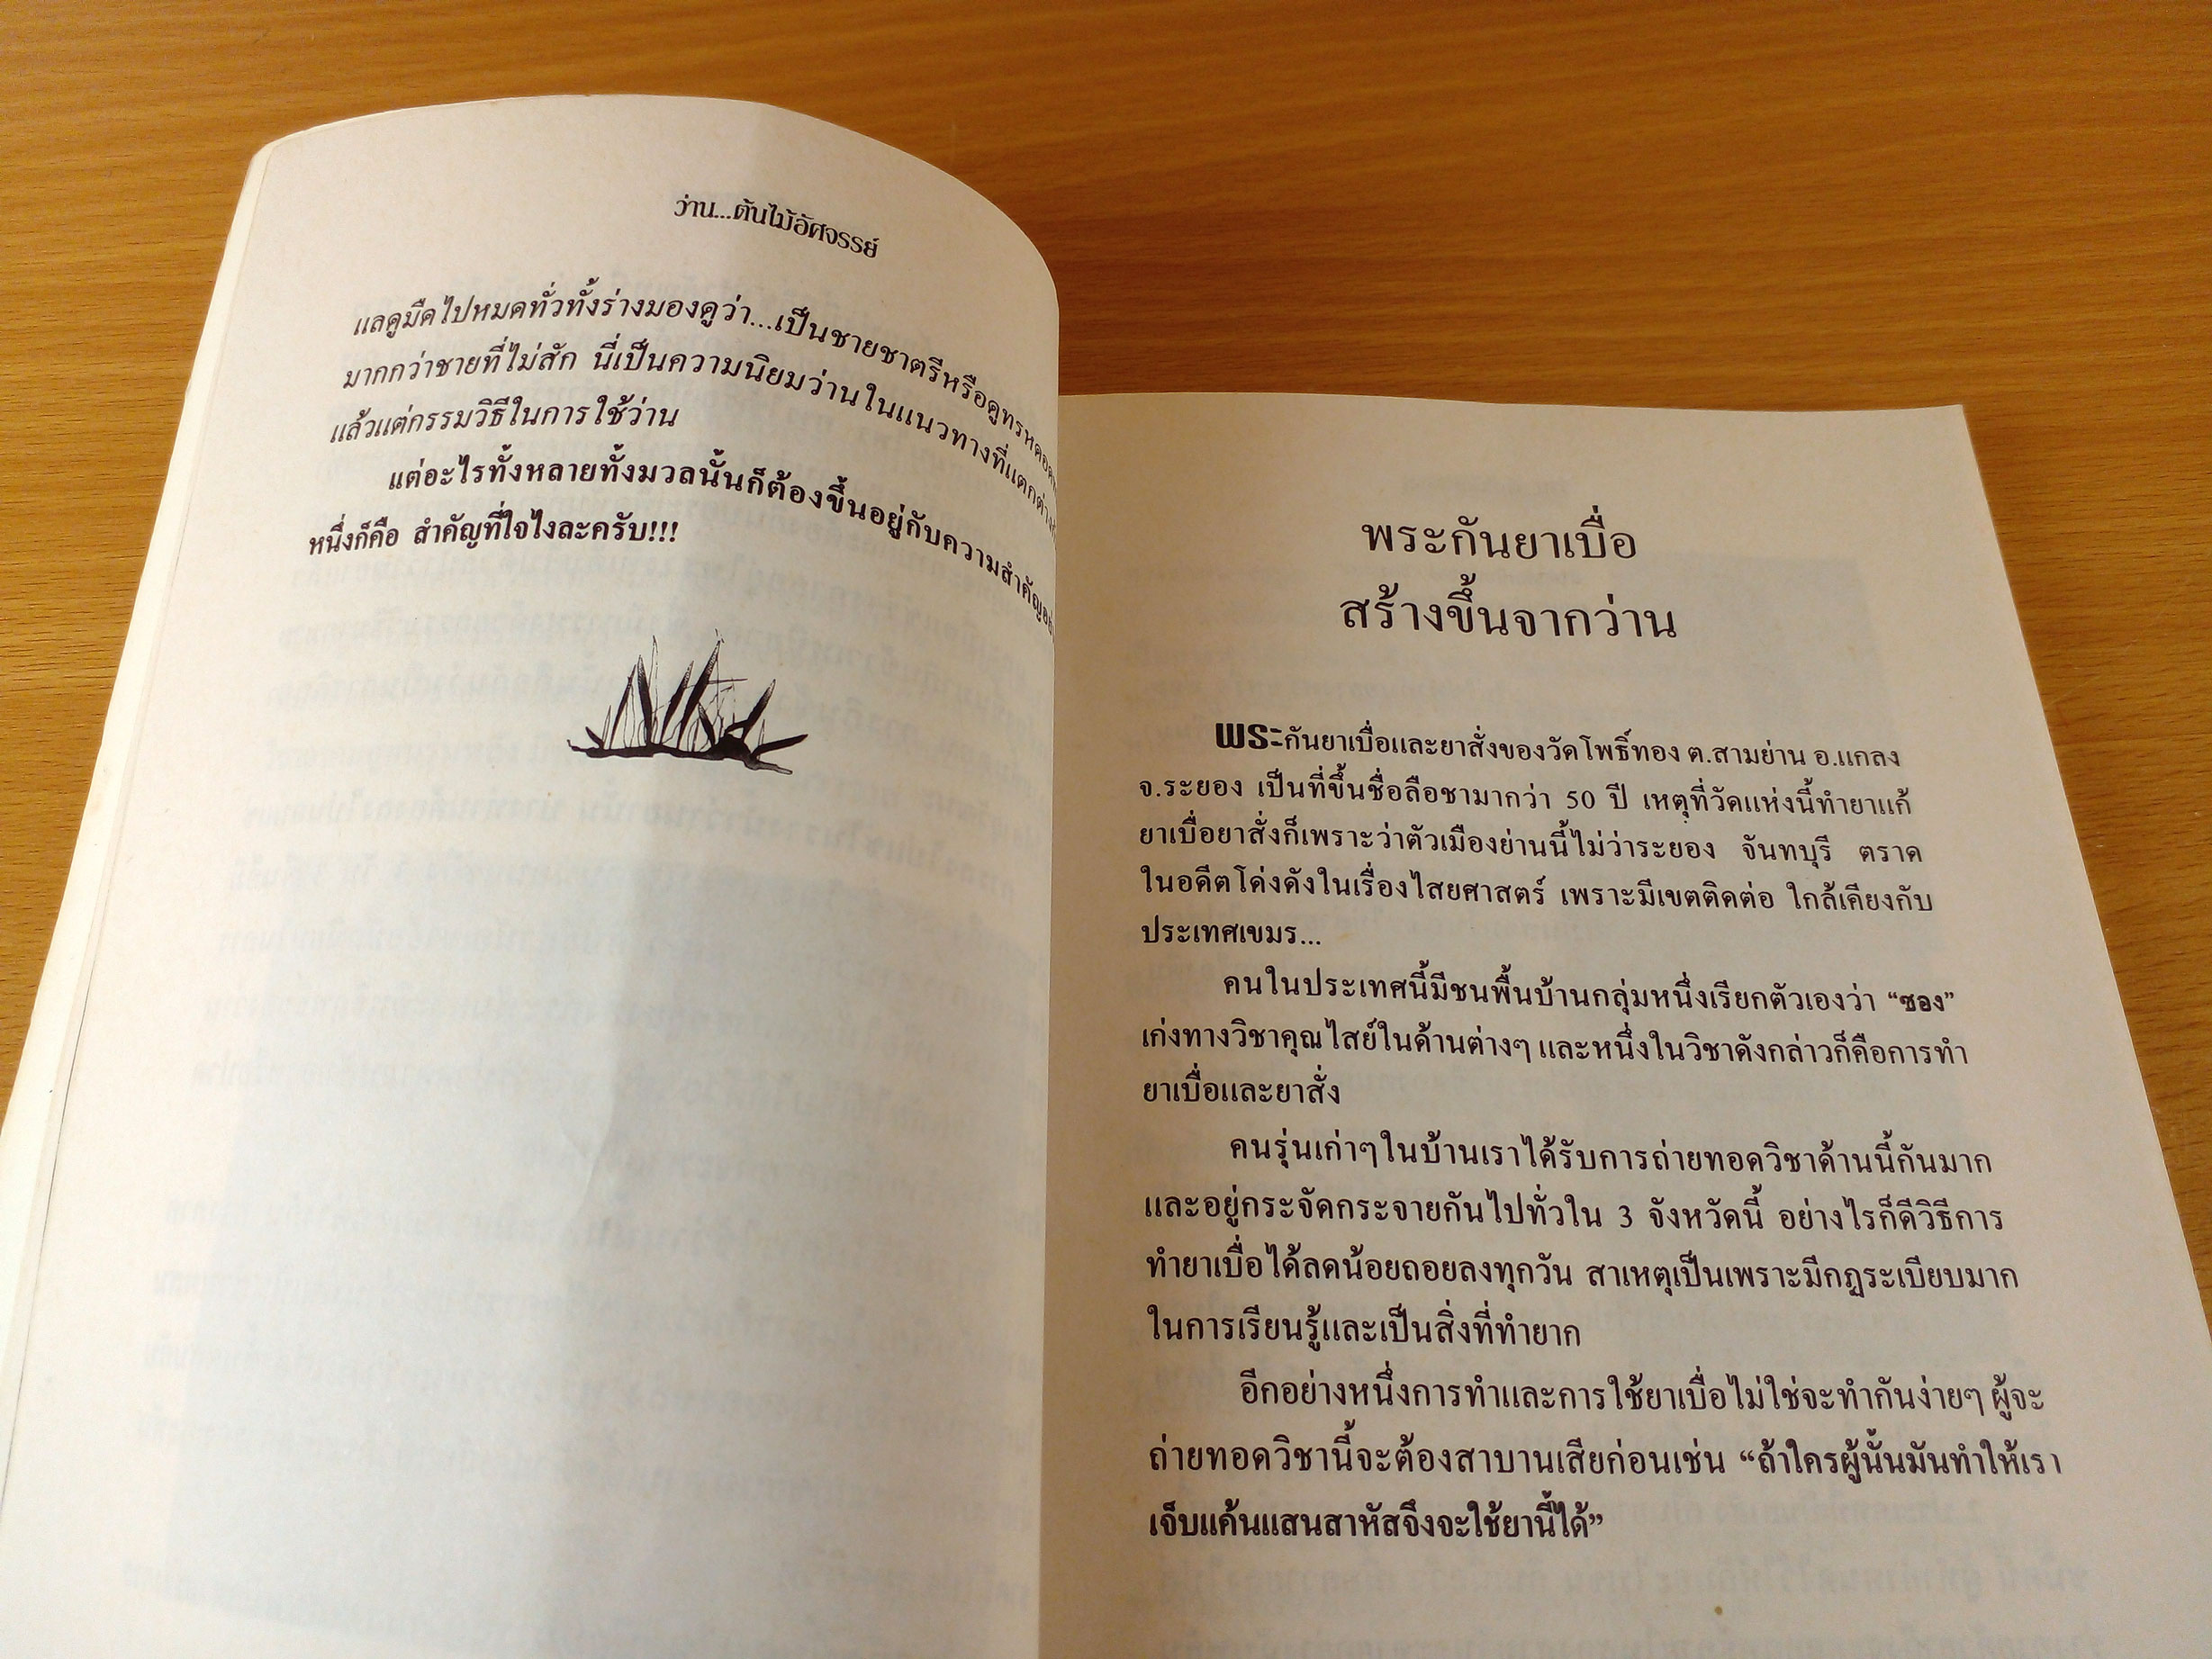 ว่าน...ต้นไม้อัศจรรย์
แลดูมืดไปหมดทั่วทั้งร่างมองดูว่า...เป็นชายชาตรีหรือดูทรหดอด
มากกว่าชายที่ไม่สัก นี่เป็นความนิยมว่านในแนวทางที่แตกต่าง
แล้วแต่กรรมวิธีในการใช้ว่าน
แต่อะไรทั้งหลายทั้งมวลนั้นก็ต้องขึ้นอยู่กับความสำคัญ
หนึ่งก็คือ สำคัญที่ใจไงละครับ!!!
พระกันยาเบื่อ
สร้างขึ้นจากว่าน
พระกันยาเบื่อและยาสั่งของวัดโพธิ์ทอง ต.สามย่าน อ.แกลง
จ.ระยอง เป็นที่ขึ้นชื่อลือชามากว่า 50 ปี เหตุที่วัดแห่งนี้ทำยาแก้
ยาเบื่อยาสั่งก็เพราะว่าตัวเมืองย่านนี้ไม่ว่าระยอง จันทบุรี ตราด
ในอดีตโด่งดังในเรื่องไสยศาสตร์ เพราะมีเขตติดต่อ ใกล้เคียงกับ
ประเทศเขมร...
คนในประเทศนี้มีชนพื้นบ้านกลุ่มหนึ่งเรียกตัวเองว่า “ซอง”
เก่งทางวิชาคุณไสย์ในด้านต่างๆ และหนึ่งในวิชาดังกล่าวก็คือการทำ
ยาเบื่อและยาสั่ง
คนรุ่นเก่าๆในบ้านเราได้รับการถ่ายทอดวิชาด้านนี้กันมาก
และอยู่กระจัดกระจายกันไปทั่วใน 3 จังหวัดนี้ อย่างไรก็ดีวิธีการ
ทำยาเบื่อได้ลดน้อยถอยลงทุกวัน สาเหตุเป็นเพราะมีกฏระเบียบมาก
ในการเรียนรู้และเป็นสิ่งที่ทำยาก
อีกอย่างหนึ่งการทำและการใช้ยาเบื่อไม่ใช่จะทำกันง่ายๆ ผู้จะ
ถ่ายทอดวิชานี้จะต้องสาบานเสียก่อนเช่น “ถ้าใครผู้นั้นมันทำให้เรา
เจ็บแค้นแสนสาหัสจึงจะใช้ยานี้ได้”